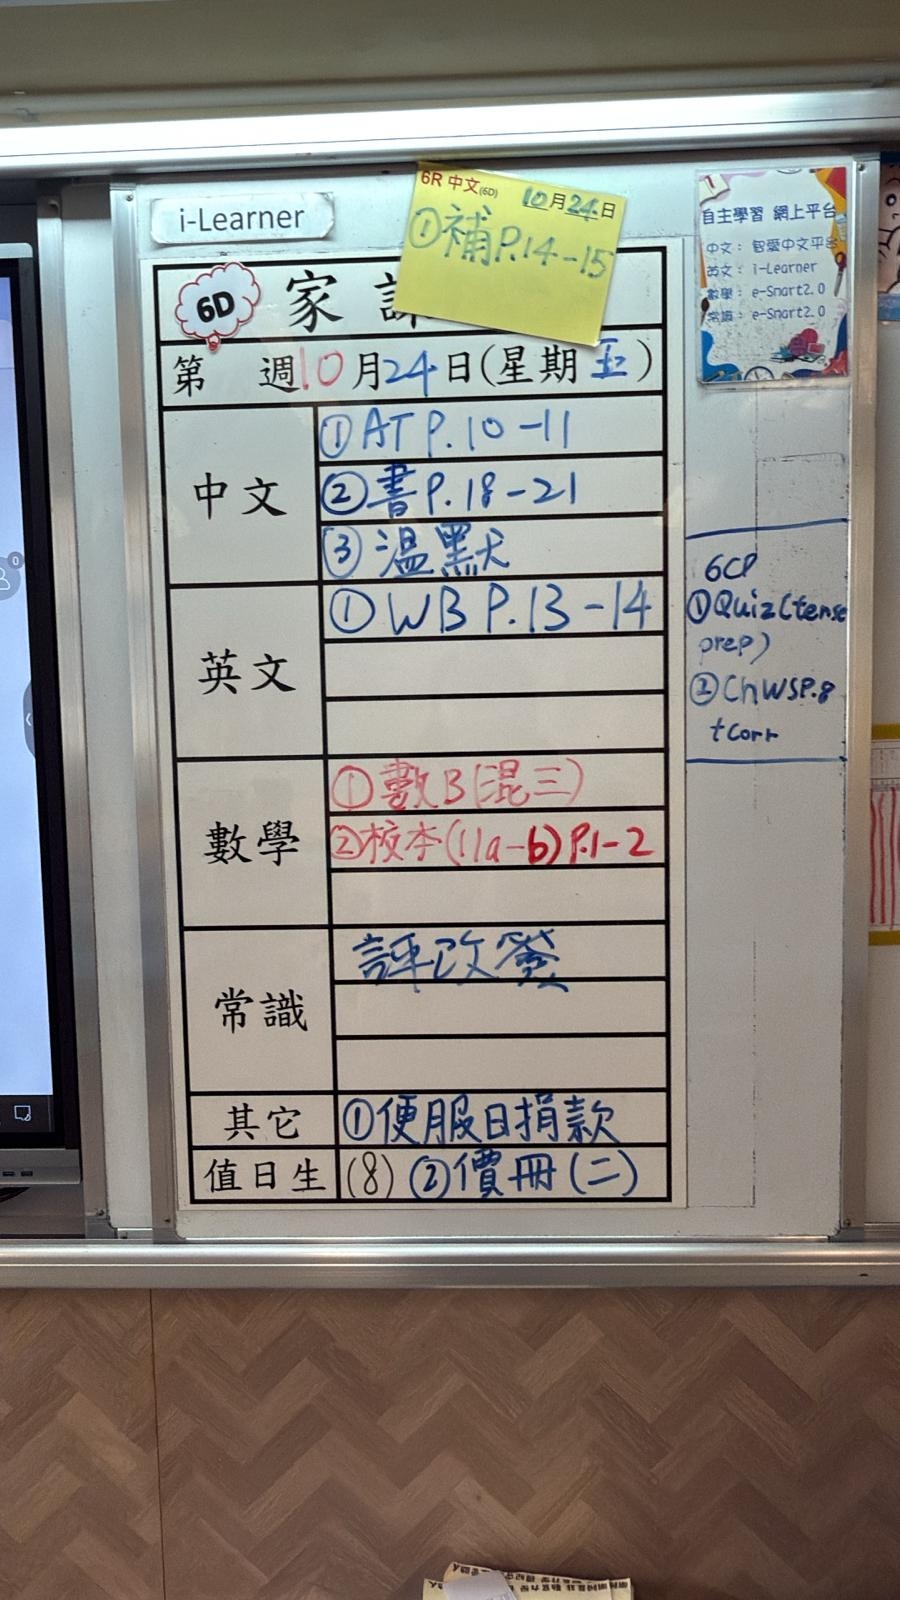 i-Learner
6R 中文(6D) 10月24日
①補P.14-15
6D 家
第 週10月24日(星期五)
中文
①AT P.10-11
②書P.18-21
③溫默
英文
①WB P.13-14
數學
①數B(混三)
②校本(11a-b)P.1-2
常識
評改簽
其它
①便服日捐款
值日生
(8) ②價冊(二)
自主學習 網上平台
中文: 智愛中文平台
英文: i-Learner
數學: e-Smart2.0
常識: e-Smart2.0
6CP
①Quiz(tense
prep)
②ChWSP.8
+Corr